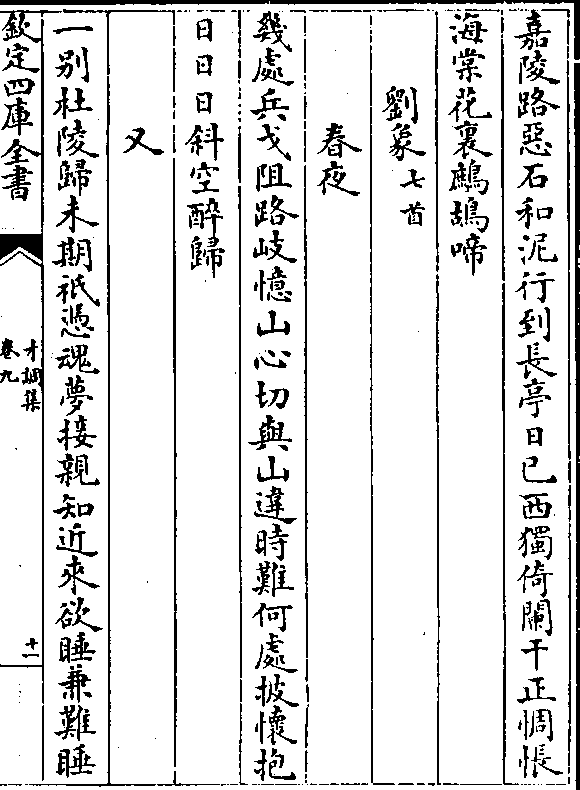 嘉陵路惡石和泥行到長亭日已西獨倚闌干正惆悵
海棠花裏鷓鴣啼
劉象七首
春夜
幾處兵戈阻路岐憶山心切與山違時難何處披懷抱
日日日斜空醉歸
又
一别杜陵歸未期祇憑魂夢接親知近來欲睡兼難睡
欽定四庫全書
才調集
卷九
十一